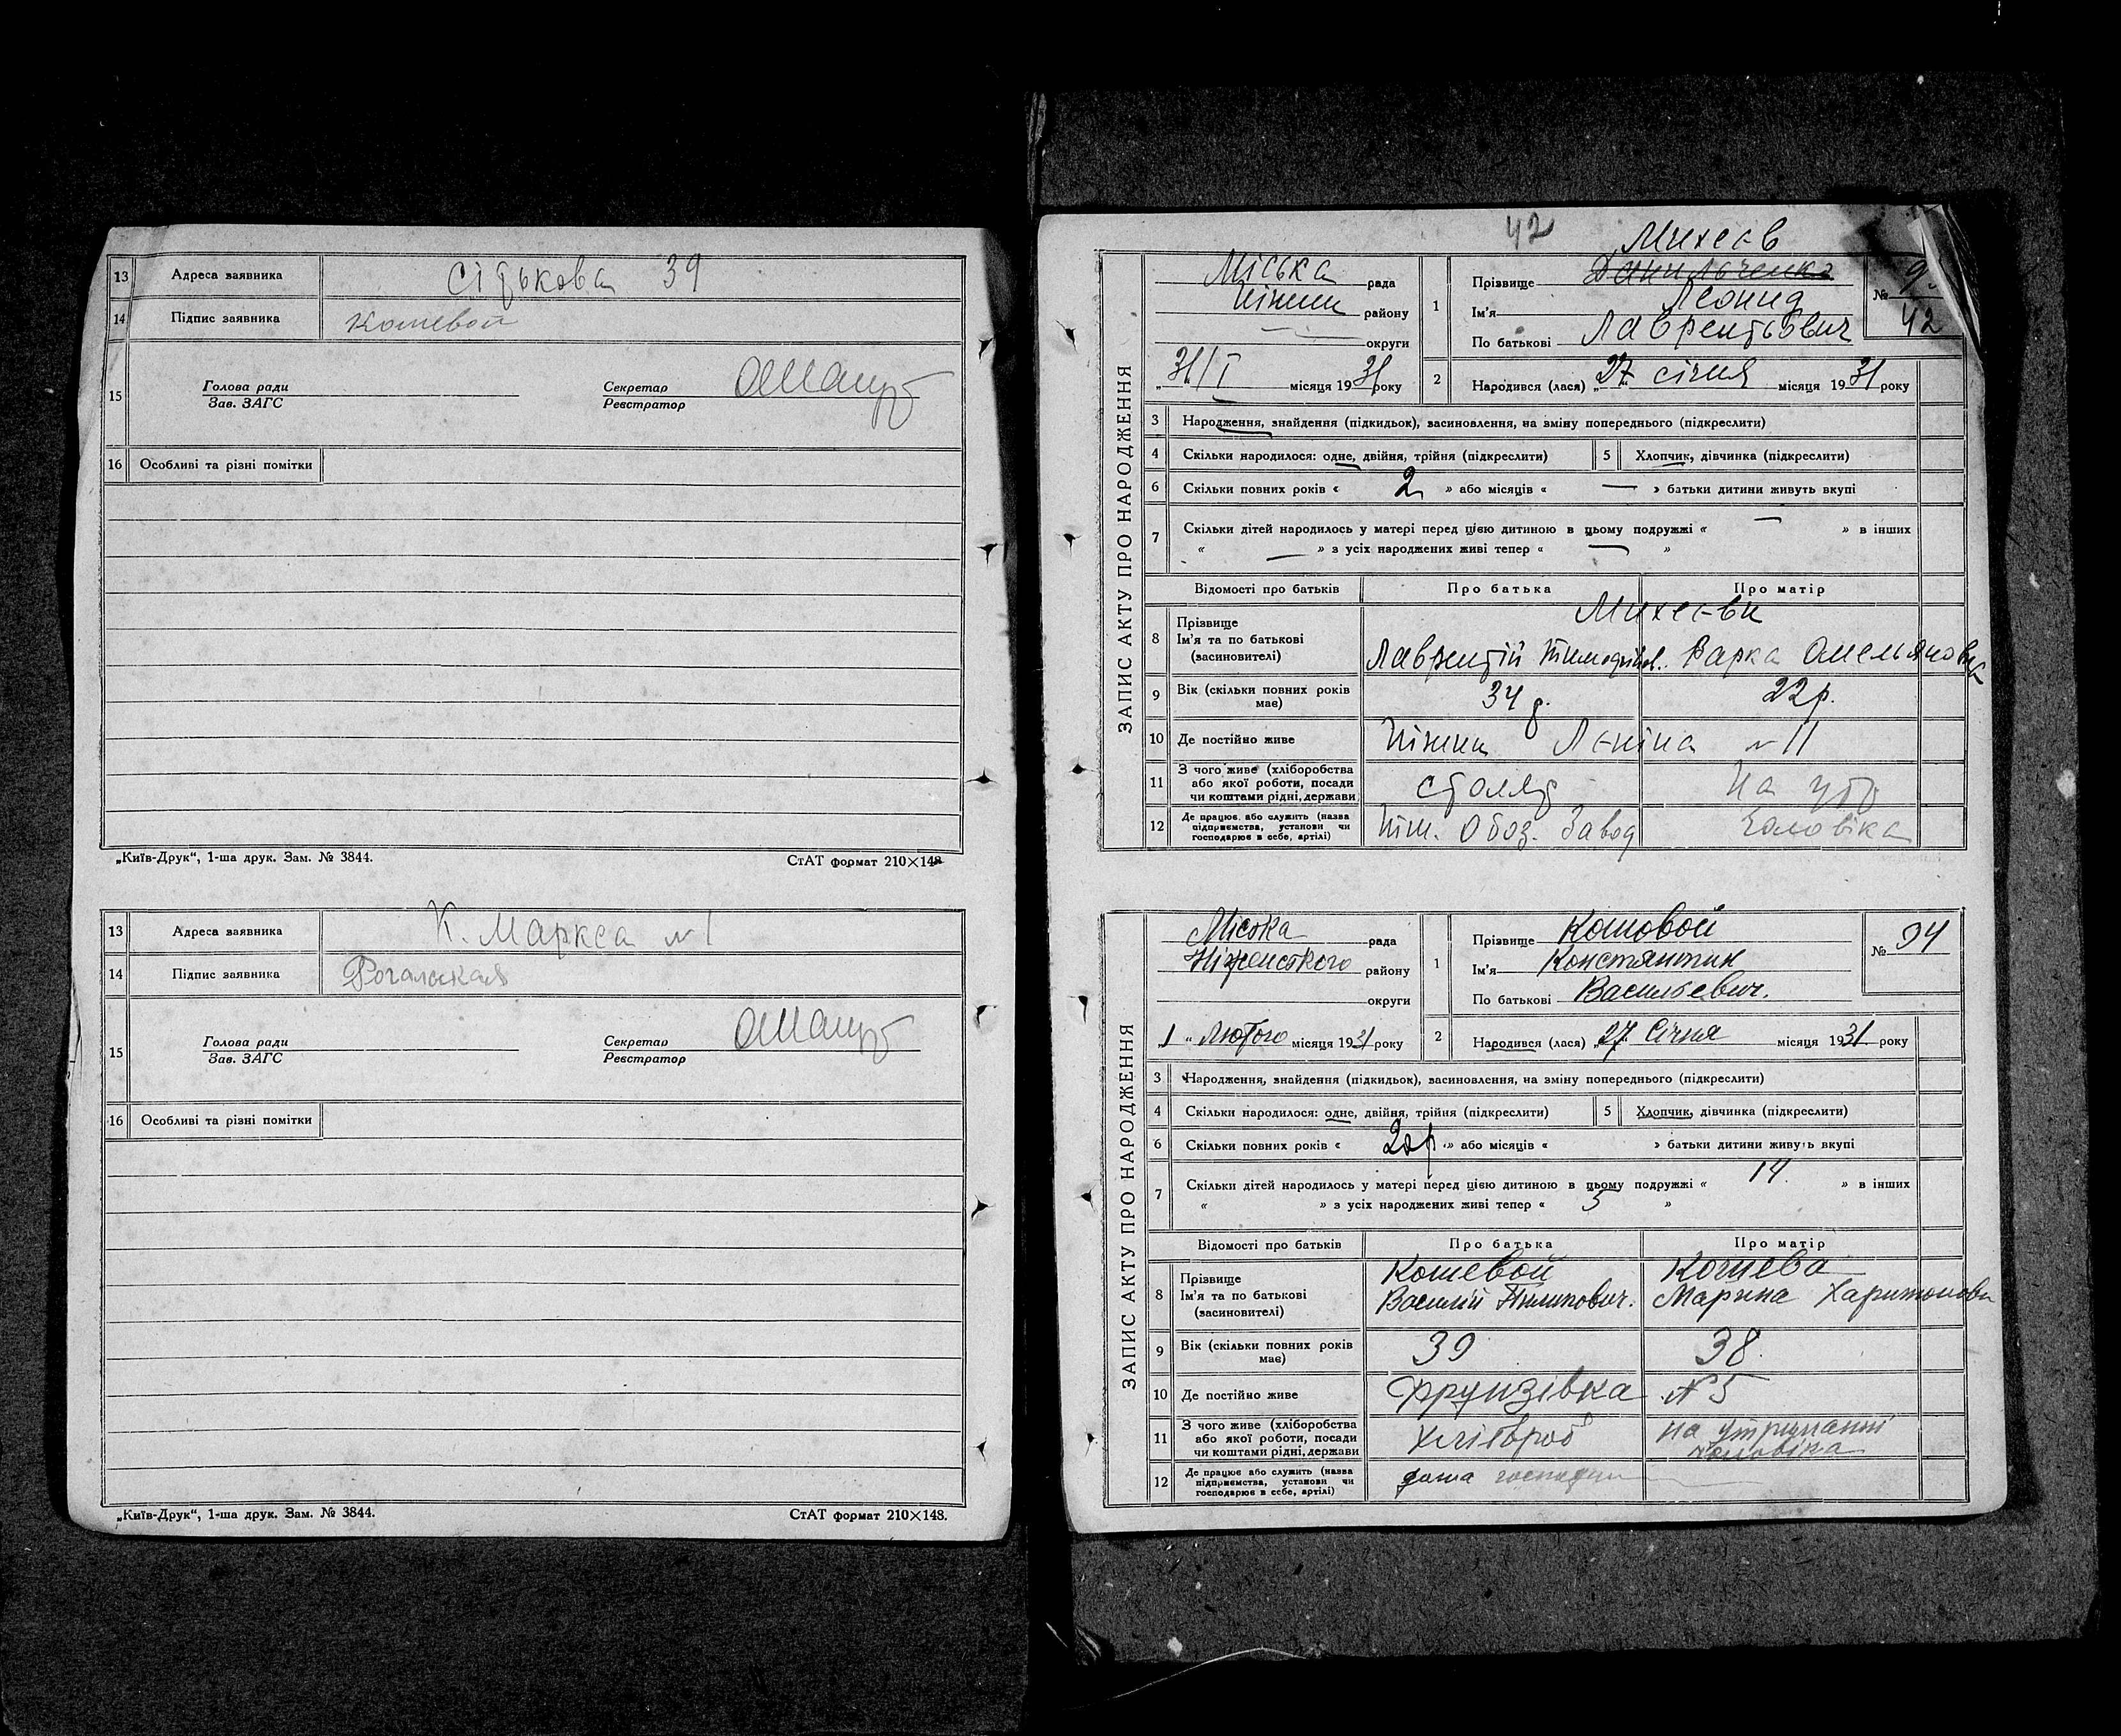 13 Адреса заявника Сітькова 39
14 Підпис заявника Кошевой
15 Голова ради Секретар
Зав. ЗАГС Реєстратор
16 Особливі та різні помітки
„Київ-Друк“, 1-ша друк. Зам. № 3844. СтАТ формат 210×148
13 Адреса заявника К. Маркса №1
14 Підпис заявника Рогальская
15 Голова ради Секретар
Зав. ЗАГС Реєстратор
16 Особливі та різні помітки
„Київ-Друк“, 1-ша друк. Зам. № 3844. СтАТ формат 210×148.
42
ЗАПИС АКТУ ПРО НАРОДЖЕННЯ
Міська рада
Ніжин району
— округи
„31/I місяця 1931 року
Михеєв
1 Прізвище Данильченко
Ім'я Леонид
По батькові Лаврентьович
№ 9
42
2 Народився (лася) „27 січня місяця 1931 року
3 Народження, знайдення (підкидьок), засиновлення, на зміну попереднього (підкреслити)
4 Скільки народилося: одне, двійня, трійня (підкреслити) 5 Хлопчик, дівчинка (підкреслити)
6 Скільки повних років « 2 » або місяців « — » батьки дитини живуть вкупі
7 Скільки дітей народилось у матері перед цією дитиною в цьому подружжі « — » в інших
« — » з усіх народжених живі тепер « — »
Відомості про батьків Про батька Про матір
8 Прізвище Михеєви
Ім'я та по батькові
(засиновителі) Лаврентій Тимофійов. Варка Омельяновна
9 Вік (скільки повних років має) 34 р. 22 р.
10 Де постійно живе Ніжин Леніна №11
11 З чого живе (хліборобства або якої роботи, посади чи коштами рідні, держави столяр На утр
12 Де працює або служить (назва підприємства, установи чи господарює в себе, артілі) Ніж. Обоз. Завод Чоловіка
ЗАПИС АКТУ ПРО НАРОДЖЕННЯ
Міська рада
Ніженського району
округи
„1“ Лютого місяця 1931 року
1 Прізвище Кошовой
Ім'я Констянтин
По батькові Васильевич.
№ 94
2 Народився (лася) „27 Січня місяця 1931 року
3 Народження, знайдення (підкидьок), засиновлення, на зміну попереднього (підкреслити)
4 Скільки народилося: одне, двійня, трійня (підкреслити) 5 Хлопчик, дівчинка (підкреслити)
6 Скільки повних років « 20р » або місяців « » батьки дитини живуть вкупі
7 Скільки дітей народилось у матері перед цією дитиною в цьому подружжі « 14 » в інших
« » з усіх народжених живі тепер « 5 »
Відомості про батьків Про батька Про матір
8 Прізвище Кошевой Кошева
Ім'я та по батькові Василій Пилипович. Марина Харитонови
(засиновителі)
9 Вік (скільки повних років має) 39 38
10 Де постійно живе Фрунзівка № 5
11 З чого живе (хліборобства або якої роботи, посади чи коштами рідні, держави Хлібороб на утриманні чоловіка
12 Де працює або служить (назва підприємства, установи чи господарює в себе, артілі)